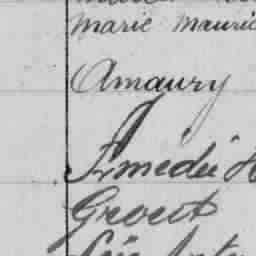 Marie Mauric
Amaury
Amédée H
Grout